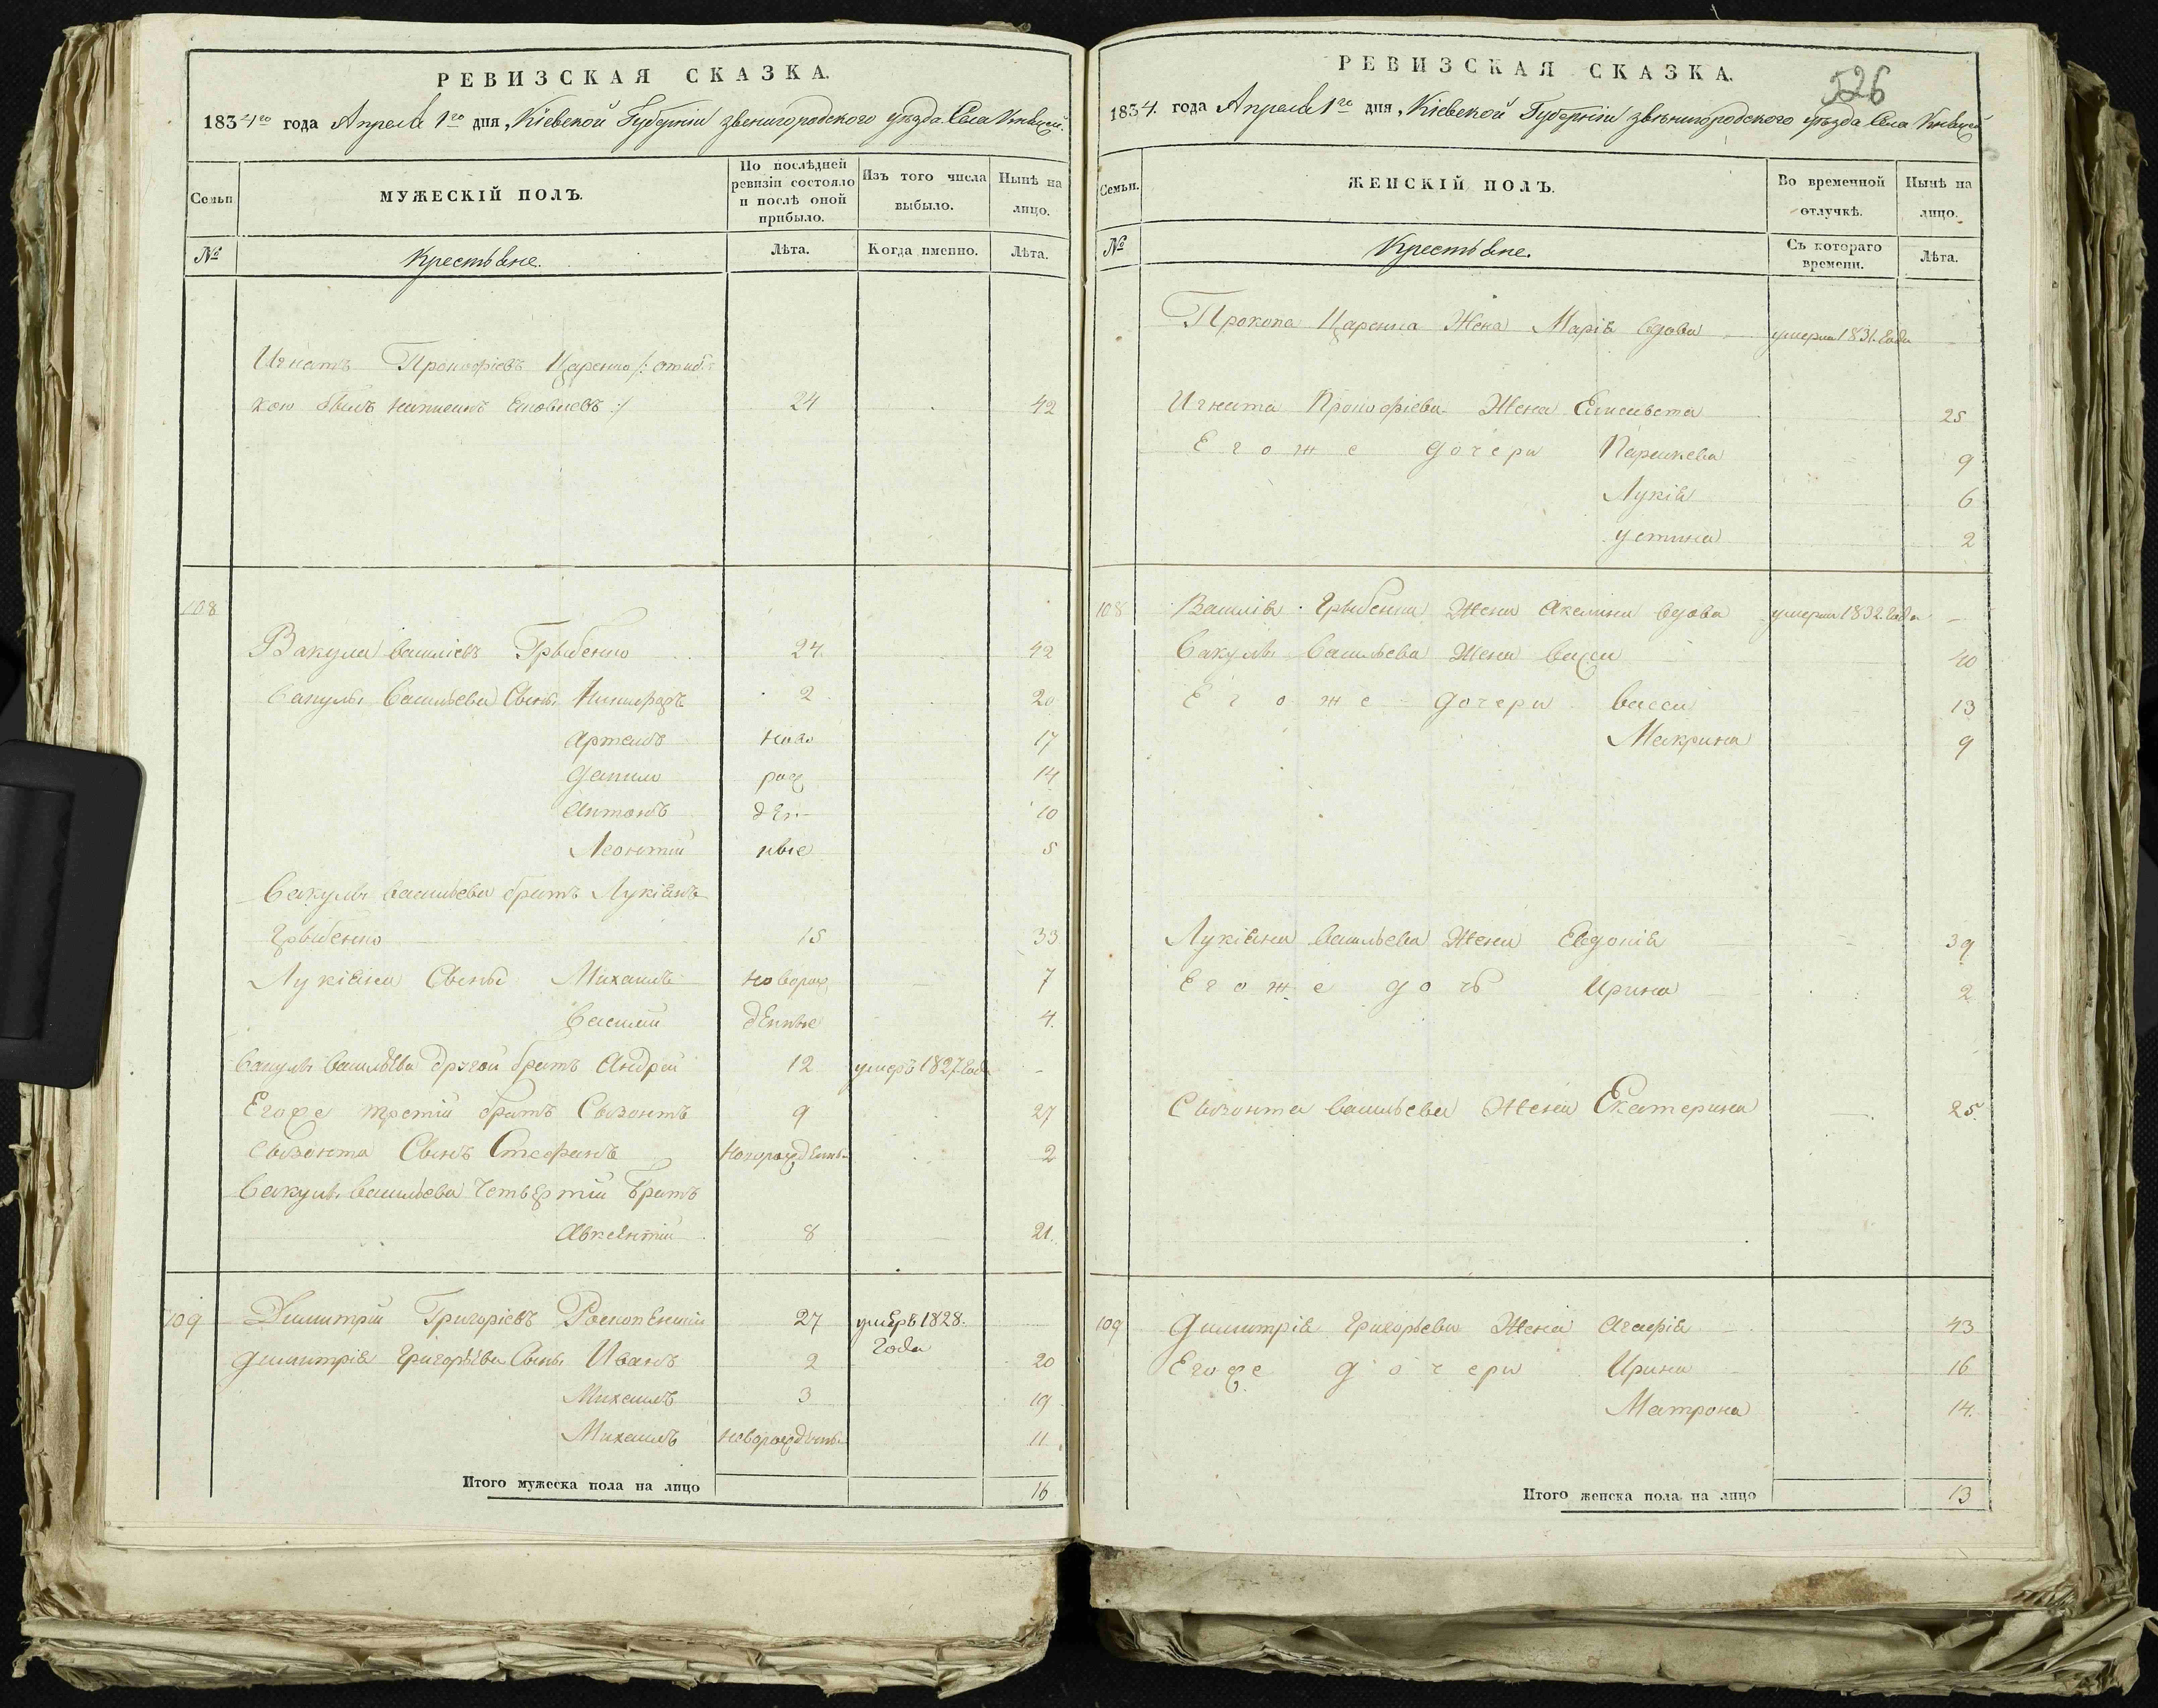 РЕВИЗСКАЯ СКАЗКА.
1834го года Апреля 1го дня, Кіевской Губерніи звенигородского уѣзда Села
Семьи
МУЖЕСКІЙ ПОЛЪ.
По послѣдней ревизіи состояло и послѣ оной прибыло.
Изъ того числа выбыло.
Нынѣ на лицо.
№
Крестьяне.
Лѣта.
Когда именно.
Лѣта.
Игнатъ Прокофіевъ Царенко /: ошиб:
кою былъ написанъ :/ 24 42
108
Вакула василіевъ Грыбенко 24 42
Вакулы Васильева Сыны Никифоръ 2 20
Артемъ ново 17
Данило рож 14
Антонъ ден 10
Леонтій ные 5
Вакулы васильева братъ Лукіянъ
Грыбенко 15 33
Лукіяна Сыны Михаилъ новорож 7
Василій денные 4.
Вакулы васильева другой братъ Андрей 12 умеръ 1827 года -
Егоже третій братъ Созонтъ 9 27
Созонта Сынъ Стефанъ новорожденны 2
Вакулы Васильева четвертій братъ
Авксентій 8 21.
109 Димитрій Григоріевъ 27 умеръ 1828.
года
Димитрія Григорьева Сыны Иванъ 2 20
Михаилъ 3 19
Михаилъ новорожденны 11
Итого мужеска пола на лицо 16
526
РЕВИЗСКАЯ СКАЗКА.
1834. года Апреля 1го дня, Кіевской Губерніи звѣнигородского уѣзда Села
Семьи.
ЖЕНСКІЙ ПОЛЪ.
Во временной отлучкѣ.
Нынѣ на лицо.
№
Крестьяне.
Съ котораго времени.
Лѣта.
Прокопа Царенка Жена Марія вдова умерла 1831. года
Игната Прокофіева Жена Елисавета 25
Егоже дочери Параскева 9
Лукія 6
устина 2
108 Василія Грыбенка Жена Акелина вдова умерла 1832. года -
Вакулы Васильева Жена васса 40
Егоже дочери васса 13
Макрина 9
Лукіяна Васильева Жена Евдокія 39
Егоже дочь Ирина 2
Созонта васильева Жена Екатерина 25.
109 Димитрія Григорьева Жена Агафія 43
Егоже дочери Ирина 16
Матрона 14.
Итого женска пола на лицо 13